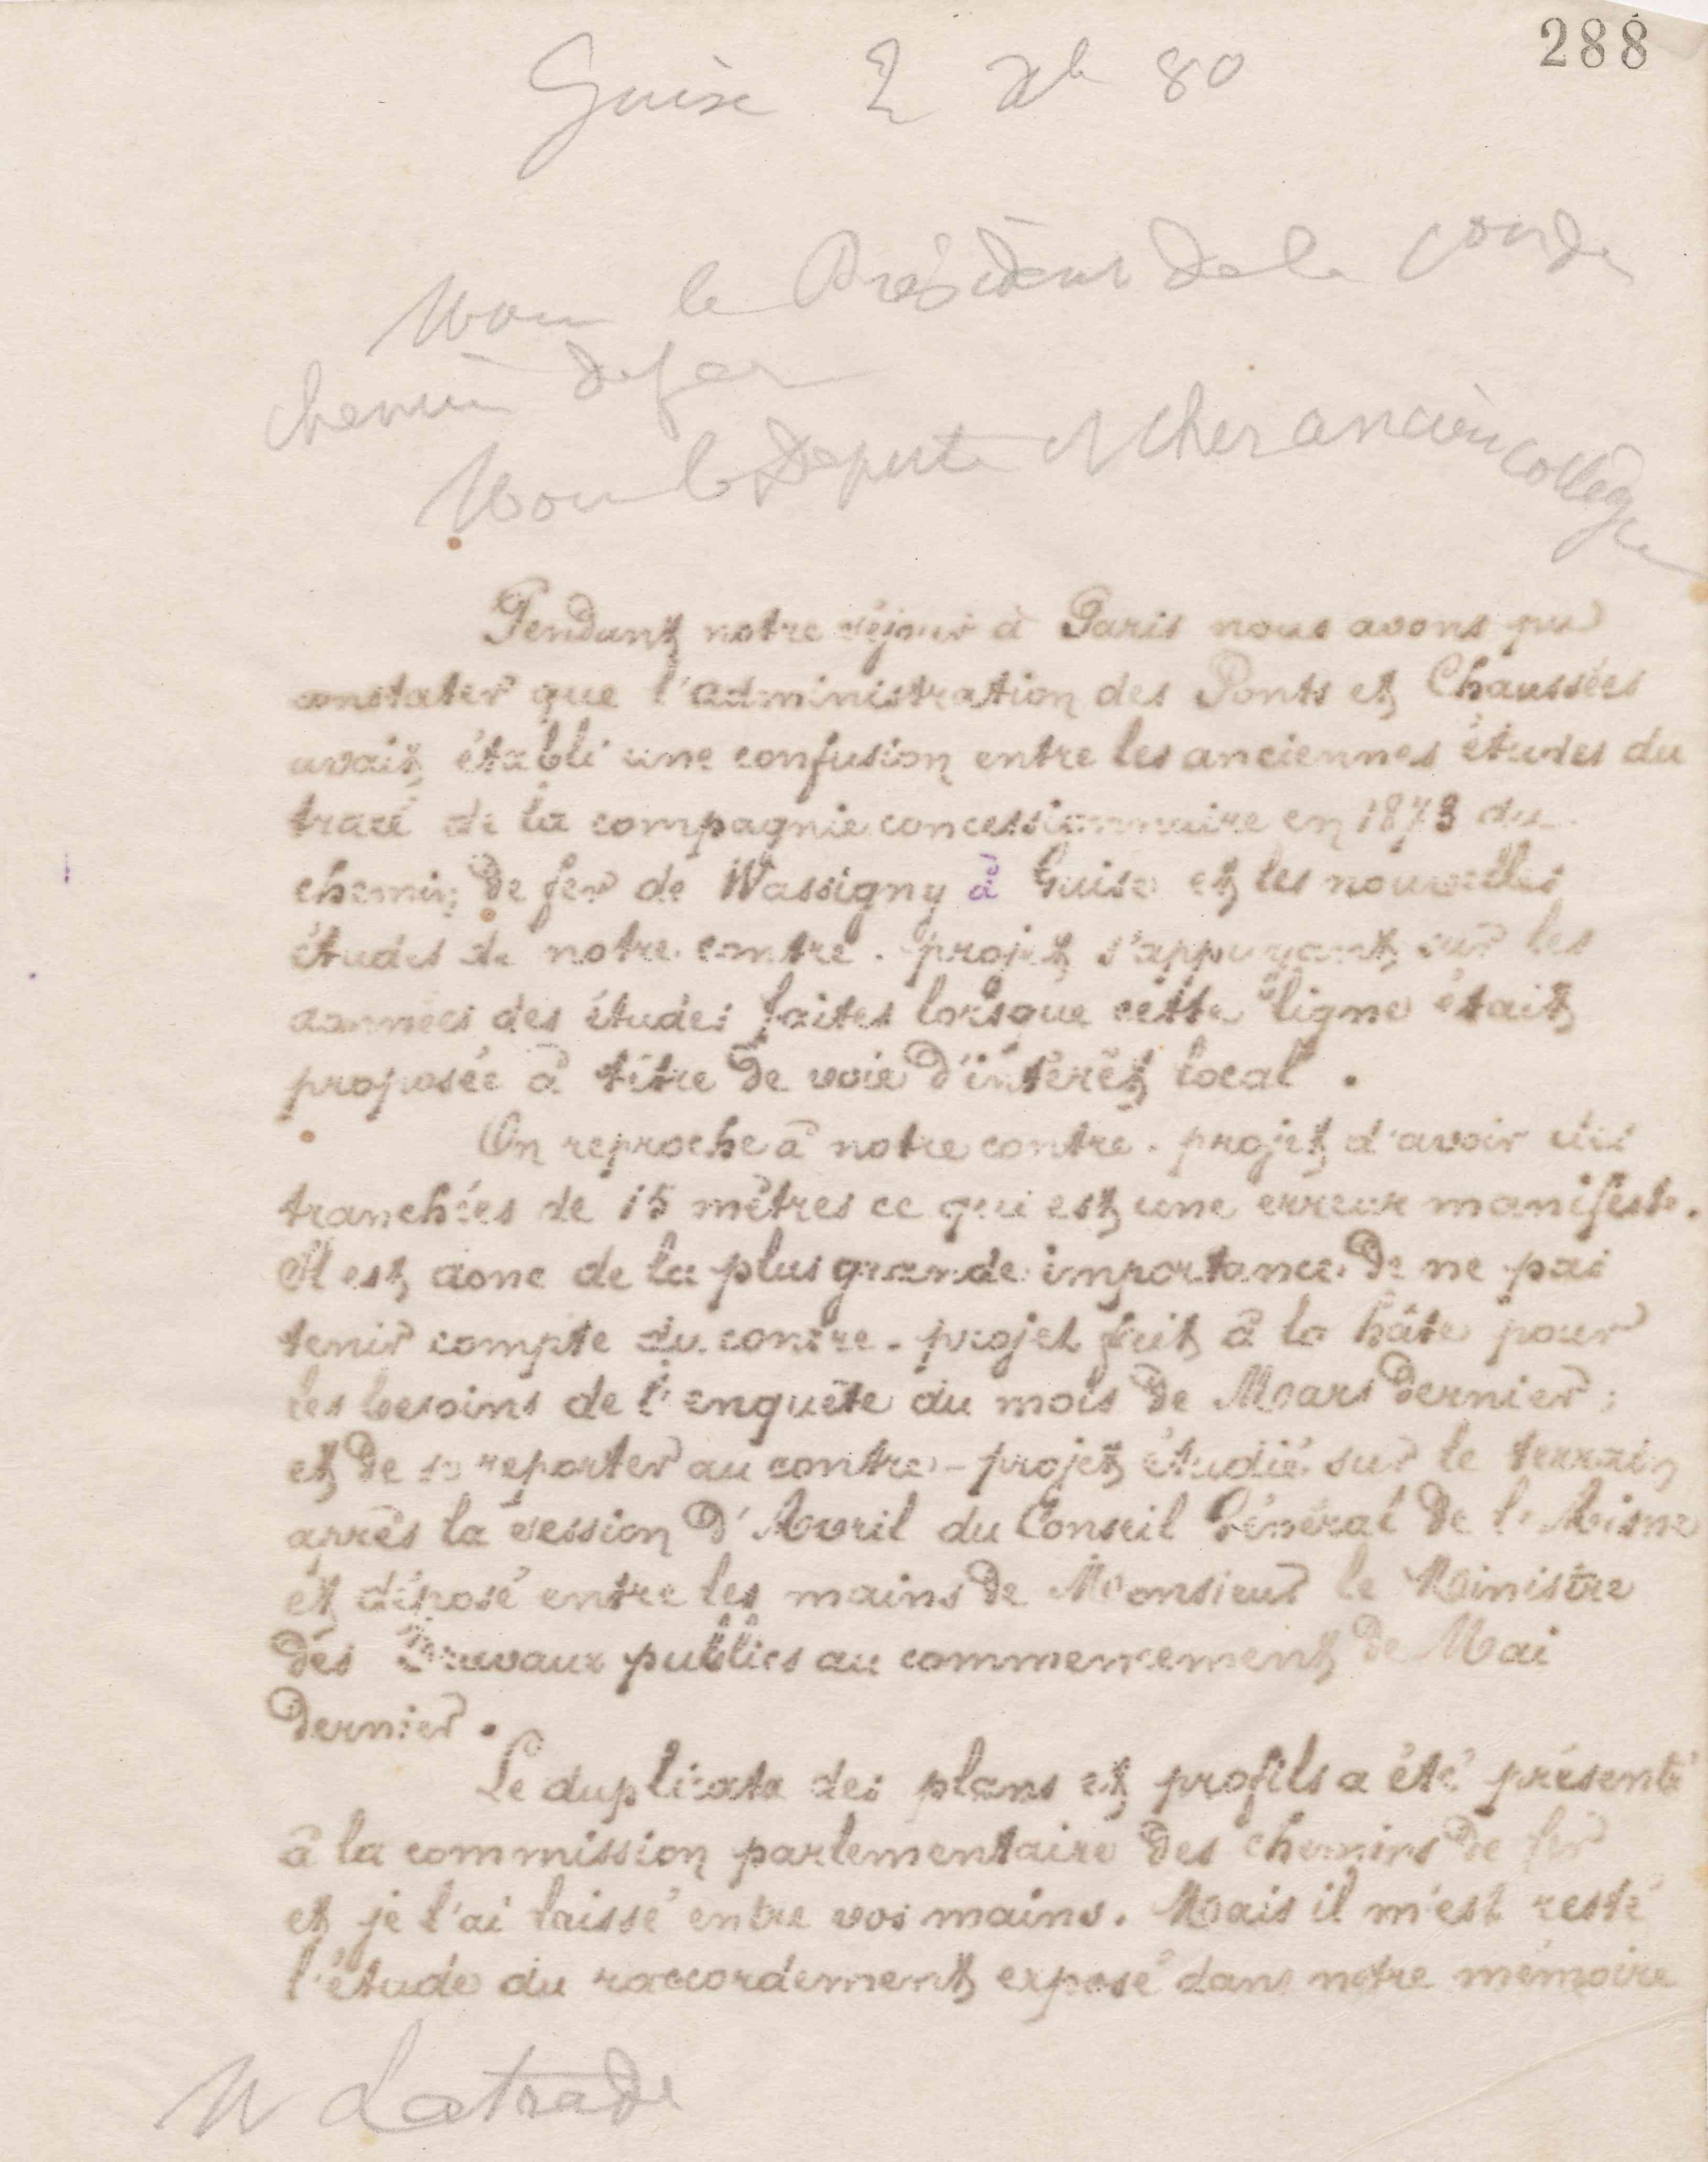 288
Guise 2 Xb 80
Mon le Président de la
chemin de fer
Mon le Député et cher ancien collègue
Pendant notre séjour à Paris nous avons pu
constater que l'administration des Ponts et Chaussées
avait établi une confusion entre les anciennes études du
tracé de la compagnie concessionnaire en 1873 du
chemin de fer de Wassigny à Guise et les nouvelles
études de notre contre-projet s'appuyant sur les
données des études faites lorsque cette ligne était
proposée à titre de voie d'intérêt local.
On reproche à notre contre-projet d'avoir des
tranchées de 15 mètres ce qui est une erreur manifeste.
Il est donc de la plus grande importance de ne pas
tenir compte du contre-projet fait à la hâte pour
les besoins de l'enquête du mois de Mars dernier;
et de se reporter au contre-projet étudié sur le terrain
après la session d'Avril du Conseil Général de l'Aisne
et déposé entre les mains de Monsieur le Ministre
des Travaux publics au commencement de Mai
dernier.
Le duplicata des plans et profils a été présenté
à la commission parlementaire des chemins de fer
et je l'ai laissé entre vos mains. Mais il m'est resté
l'étude du raccordement exposé dans notre mémoire
M Latrade